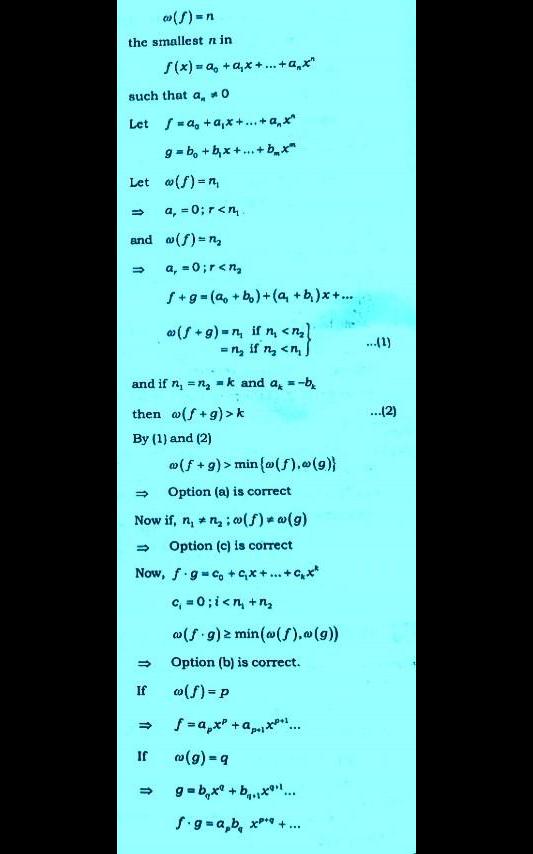 ω(f) = n
the smallest n in
f(x) = a₀ + a₁x + ... + aₙxⁿ
such that aₙ ≠ 0
Let f = a₀ + a₁x + ... + aₙxⁿ
g = b₀ + b₁x + ... + bₘxᵐ
Let ω(f) = n₁
⇒ aᵣ = 0 ; r < n₁
and ω(f) = n₂
⇒ aᵣ = 0 ; r < n₂
f + g = (a₀ + b₀) + (a₁ + b₁)x + ...
ω(f + g) = n₁ if n₁ < n₂}
= n₂ if n₂ < n₁} ...(1)
and if n₁ = n₂ = k and aₖ = -bₖ
then ω(f + g) > k ...(2)
By (1) and (2)
ω(f + g) > min{ω(f), ω(g)}
⇒ Option (a) is correct
Now if, n₁ ≠ n₂ ; ω(f) ≠ ω(g)
⇒ Option (c) is correct
Now, f · g = c₀ + c₁x + ... + cₖxᵏ
cᵢ = 0 ; i < n₁ + n₂
ω(f · g) ≥ min(ω(f), ω(g))
⇒ Option (b) is correct.
If ω(f) = p
⇒ f = aₚxᵖ + aₚ₊₁xᵖ⁺¹...
If ω(g) = q
⇒ g = b_q x^q + b_{q+1} x^{q+1}...
f · g = a_p b_q x^{p+q} + ...